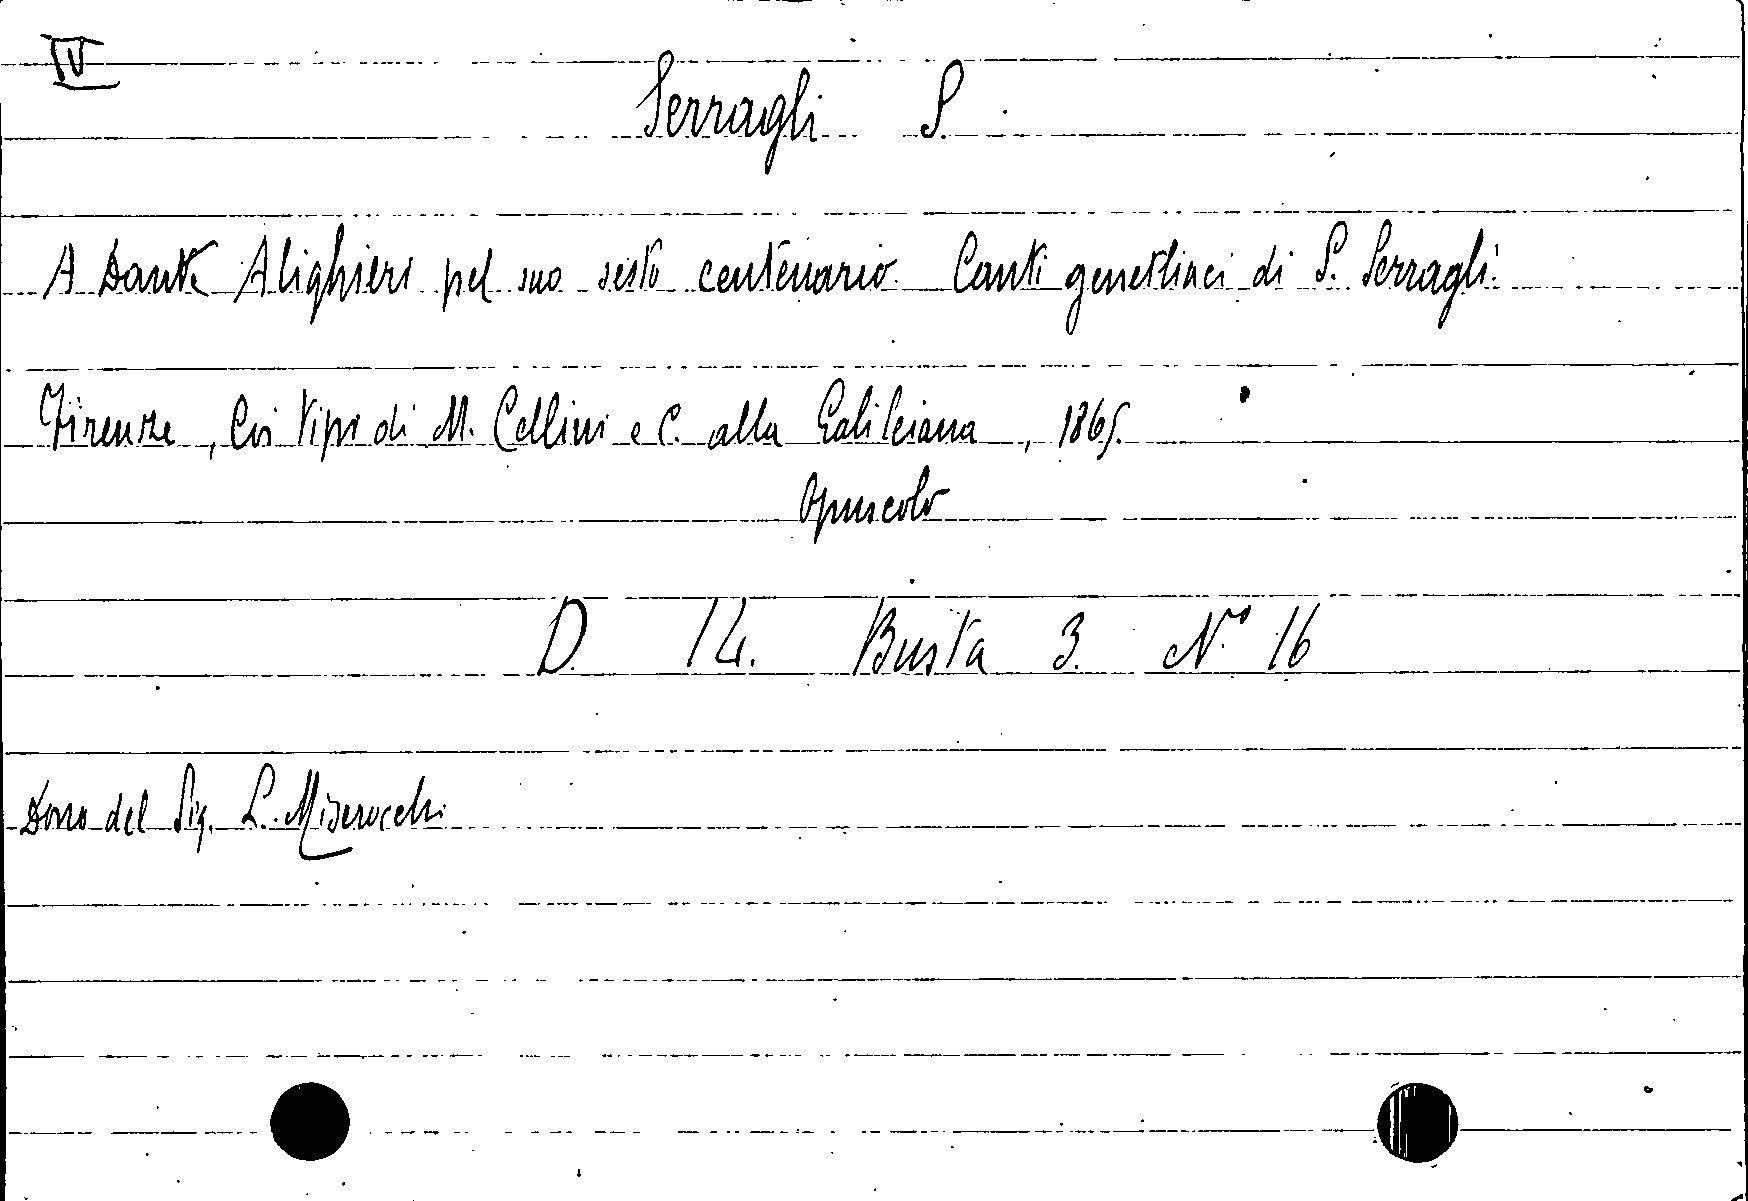 IV
Serragli S.
A Dante Alighieri pel suo sesto centenario. Canti genetliaci di S. Serragli.
Firenze, Coi tipi di M. Cellini e C. alla Galileiana, 1865.
Opuscolo
D. 14. Busta 3. N.° 16
Dono del Sig. L. Miserocchi